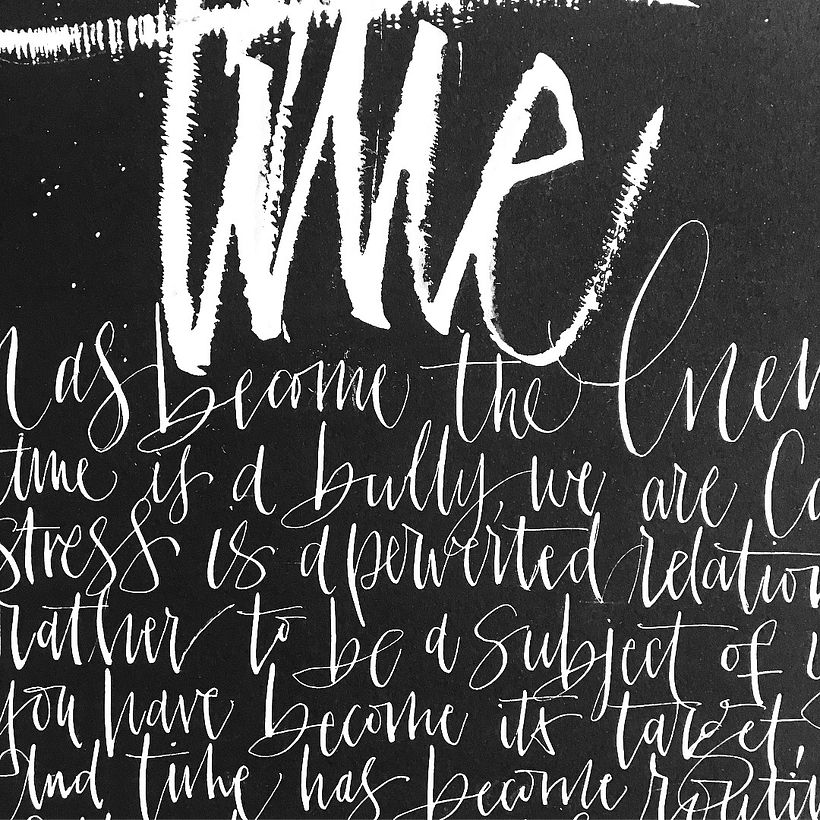 Time
has become the Enem
time is a bully, we are Ca
stress is a perverted relation
rather to be a subject of
you have become its target,
And time has become routin